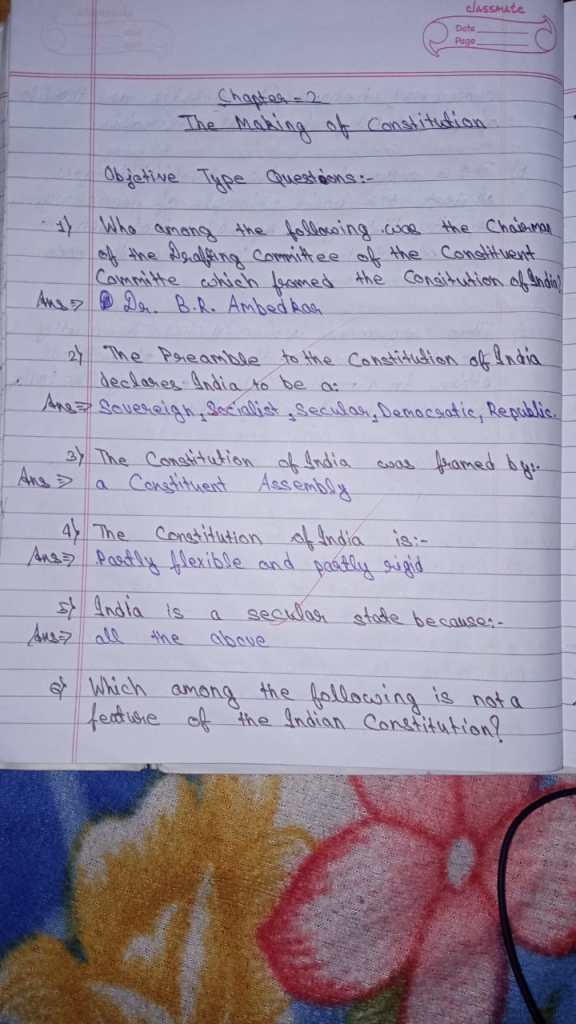 classmate
Date
Page
Chapter - 2
The Making of Constitution
Objetive Type Questions:-
1) Who among the following was the Chairman
of the Drafting Committee of the Constituent
Committe which framed the Consitution of India?
Ans⇒ Dr. B.R. Ambedkar
2) The Preamble to the Constitution of India
declares India to be a:
Ans⇒ Sovereign, Socialist, Secular, Democratic, Republic.
3) The Constitution of India was framed by:-
Ans⇒ a Constituent Assembly
4) The Constitution of India is:-
Ans⇒ Partly flexible and partly rigid
5) India is a secular state because:-
Ans⇒ all the above
6) Which among the following is not a
feature of the Indian Constitution?